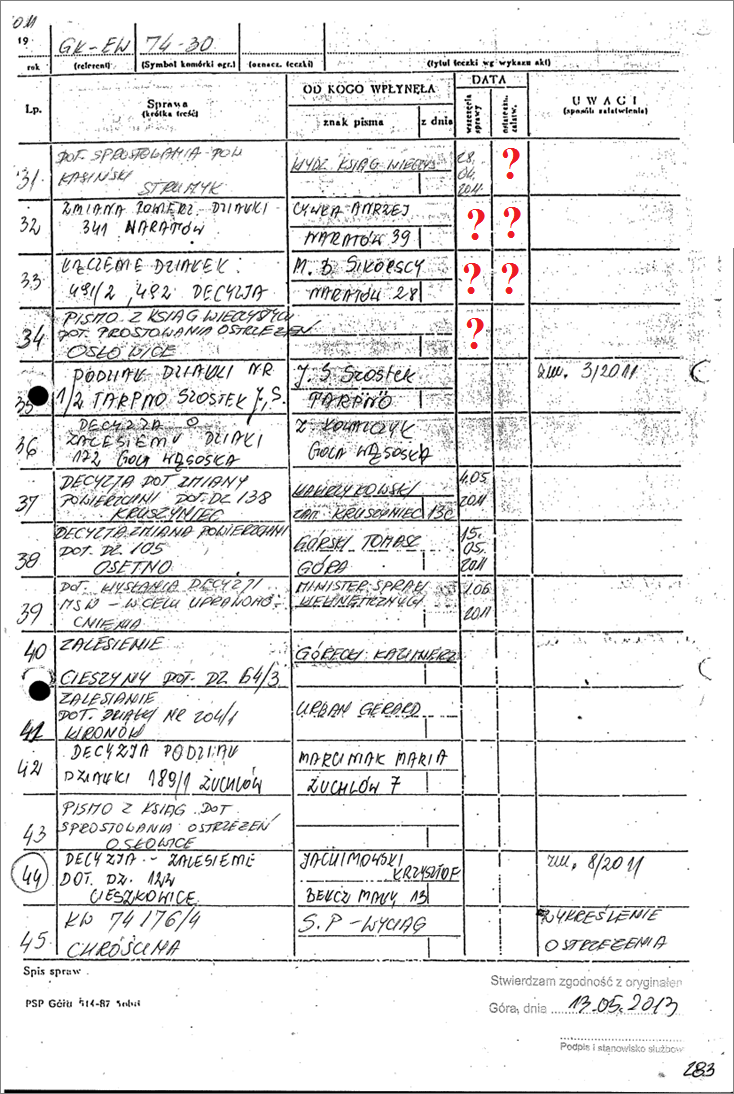 2011
19
GK-EW 74-30
rok (referent) (Symbol komórki org.) (oznacz. teczki) (tytuł teczki wg wykazu akt)
Lp.
Sprawa
(krótka treść)
OD KOGO WPŁYNĘŁA
znak pisma z dnia
DATA
wszczęcia sprawy
ostateczn. załatw.
UWAGI
(sposób załatwienia)
31 DOT. SPROSTOWANIA POW
KASIŃSKI
STRUMYK
WYDZ. KSIĄG WIECZYS
28.
04.
2011
?
32 ZMIANA POWIERZ. DZIAŁKI
341 NARATÓW
CYWKA ANRZEJ
NARATÓW 39
? ?
33 ŁĄCZENIE DZIAŁEK
491/2, 492 DECYZJA
M. B SIKORSCY
NARATÓW 28
? ?
34 PISMO Z KSIĄG WIECZYSTYCH
DOT. PROSTOWANIA OSTRZEŻEŃ
OSŁOWICE
?
35 PODZIAŁ DZIAŁKI NR
1/2 TARPNO SZOSTEK J, S.
J. S SZOSTEK
TARPNO
zm. 3/2011
36 DECYZJA O
ZALESIENIU DZIAŁKI
172 GOLA WĄSOSKA
Z. KOWALCZYK
GOLA WĄSOSKA
37 DECYZJA DOT ZMIANY
POWIERZCHNI DOT. DZ 138
KRUSZYNIEC
WAWRZYKOWSKI
ZAM. KRUSZYNIEC 13C
4.05
2011
38 DECYZJA ZMIANA POWIERZCHNI
DOT. DZ 105
OSETNO
GÓRSKI TOMASZ
GÓRA
15.
05.
2011
39 DOT. WYSŁANIA DECYZJI
MSW - W CELU UPRAWOMO-
CNIENIA
MINISTER SPRAW
WEWNĘTRZNYCH
1.06
2011
40 ZALESIENIE
CIESZYNY DOT. DZ 64/3
GÓRECKI KAZIMIERZ
41 ZALESIANIE
DOT. DZIAŁKI NR 204/1
WRONÓW
URBAN GERARD
42 DECYZJA PODZIAŁ
DZIAŁKI 189/1 ŻUCHLÓW
MARCINIAK MARIA
ŻUCHLÓW 7
43 PISMO Z KSIĄG DOT.
SPROSTOWANIA OSTRZEŻEŃ
OSŁOWICE
44 DECYZJA - ZALESIENIE
DOT. DZ. 122
CIESZKOWICE
JACHIMOWSKI
KRZYSZTOF
BEŁCZ MAŁY 13
zm. 8/2011
45 KW 74176/4
CHRÓŚCINA
S.P - WYCIĄG
WYKREŚLENIE
OSTRZEŻENIA
Spis spraw
PSP Góra 514-87
Stwierdzam zgodność z oryginałem
Góra, dnia 13.05.2013
Podpis i stanowisko służbow
283